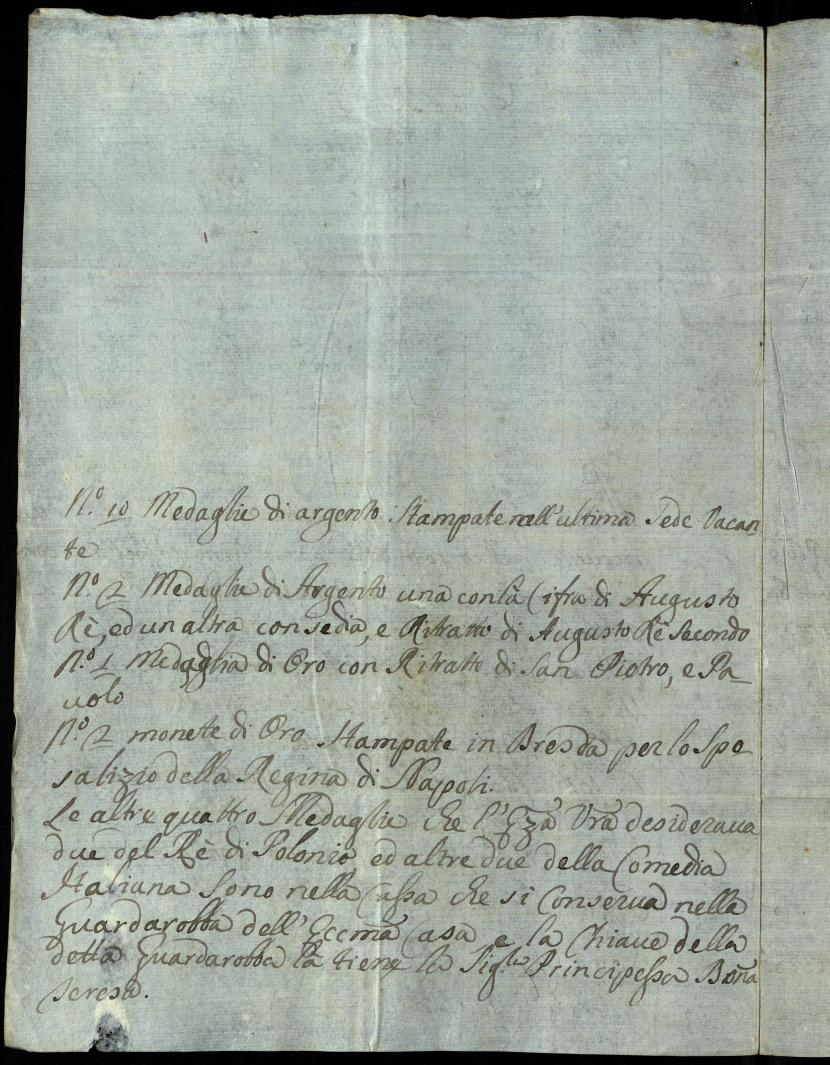 N.º 10 Medaglie di argento Stampate nell'ultima Sede Vacan
te
N.º 2 Medaglie di Argento una con la Cifra di Augusto
Rè, ed un altra con sedia, e Ritratto di Augusto Rè Secondo
N.º 1 Medaglia di Oro con Ritratto di San Pietro, e Pa_
uolo
N.º 2 monete di Oro Stampate in Bresda per lo Spo_
salizio della Regina di Napoli.
Le altre quattro Medaglie che l'Ecza Vra desideraua
due del Rè di Polonia ed altre due della Comedia
Italiana Sono nella Cassa che si Conserua nella
Guardarobba dell'Eccma Casa e la Chiaue della
detta Guardarobba la tiene la Sigra Principessa Dona
Teresa.